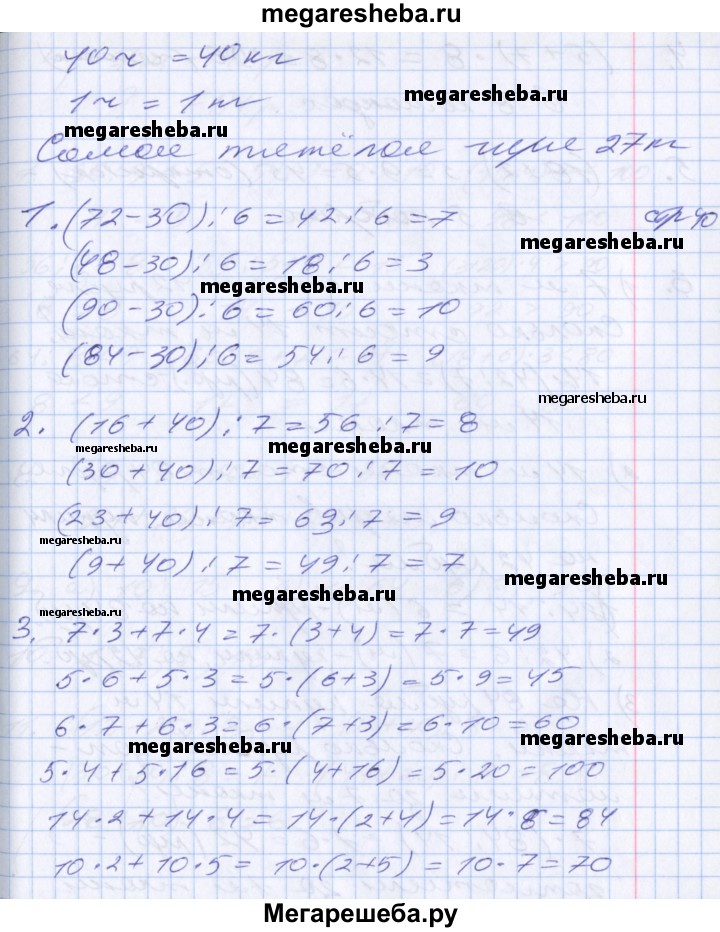 megaresheba.ru
40 ч = 40 кг
1 ч = 1 кг
megaresheba.ru
megaresheba.ru
27 кг
1. (72-30):6 = 42:6 = 7 стр 40
megaresheba.ru
(48-30):6 = 18:6 = 3
megaresheba.ru
(90-30):6 = 60:6 = 10
(84-30):6 = 54:6 = 9
megaresheba.ru
2. (16+40):7 = 56:7 = 8
megaresheba.ru
megaresheba.ru
(30+40):7 = 70:7 = 10
(23+40):7 = 63:7 = 9
megaresheba.ru
(9+40):7 = 49:7 = 7
megaresheba.ru
megaresheba.ru
3. 7·3+7·4 = 7·(3+4) = 7·7 = 49
5·6+5·3 = 5·(6+3) = 5·9 = 45
6·7+6·3 = 6·(7+3) = 6·10 = 60
megaresheba.ru
megaresheba.ru
5·4+5·16 = 5·(4+16) = 5·20 = 100
14·2+14·4 = 14·(2+4) = 14· = 84
10·2+10·5 = 10·(2+5) = 10·7 = 70
Мегарешеба.ру